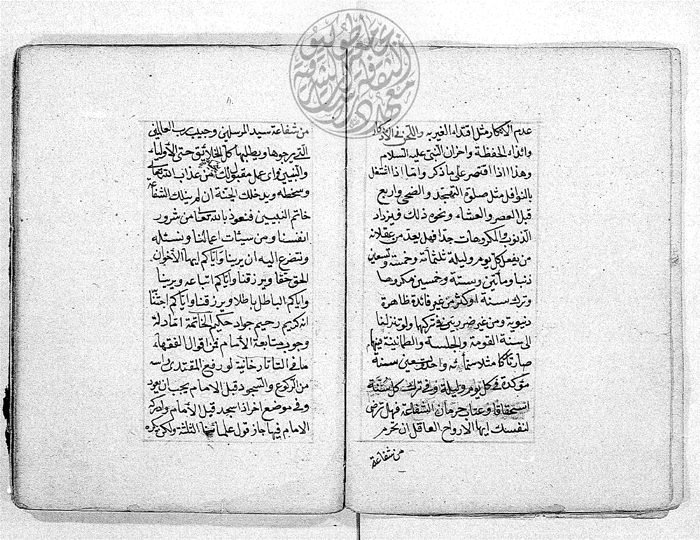 عدم الانكار مثل اقتداء الغير به واللحن في الاذكار
وايذاء الحفظة واحزان النبي عليه السلام
وهذا اذا اقتصر على ما ذكر واما اذا اشتغل
بالنوافل مثل صلوة التهجد والضحى واربع
قبل العصر والعشاء ونحو ذلك فيزداد
الذنوب والمكروهات جدا فهل يعد من عقلاء
من يفعل كل يوم وليلة ثلثمأة وخمسة وتسعين
ذنبا ومأتين وستة وخمسين مكروها
وترك سنة او كثر من غير فائدة ظاهرة
دنيوية ومن غير ضرر بين في تركها ولو نزلنا
الى سنة القومة والجلسة والطمانينة فيهما
صارتا كا مثلا ستمأة واحد وتسعين سنة
مؤكدة في كل يوم وليلة وفي ترك كل سنة
استحقاق وعتاب حرمان الشفاعة فهل ترضى
لنفسك ايها الارواح العاقل ان تحرم
من شفاعة
من شفاعة سيد المرسلين وحبيب رب العالمين
التي يرجوها ويطلبها كل الخلائق حتى الاولياء
والنبيين واى عمل مقبول لك من عذاب الله تعالى
وسخطه ويدخلك الجنة ان لم ينلك الشفاعة
خاتم النبيين فنعوذ بالله تعالى من شرور
انفسنا ومن سيئات اعمالنا ونسئله
ونتضرع اليه ان يرينا واياكم ايها الاخوان
الحق حقا ويرزقنا واياكم اتباعه ويرينا
واياكم الباطل باطلا ويرزقنا واياكم اجتنابه
انه كريم رحيم جواد حكيم الخاتمة في ادلة
وجوب متابعة الأمام من اقوال الفقهاء
ما في التاتارخانية لو رفع المقتدى رأسه
من الركوع والسجود قبل الامام يجب ان يعود
وفي موضع اخر اذا سجد قبل الأمام وادركه
الامام فيها جاز قول علمائنا الثلثة ولكن يكره